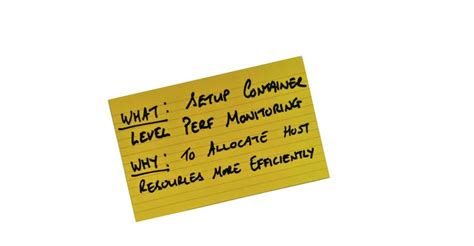 WHAT: SETUP CONTAINER
LEVEL PERF MONITORING
WHY: TO ALLOCATE HOST
RESOURCES MORE EFFICIENTLY